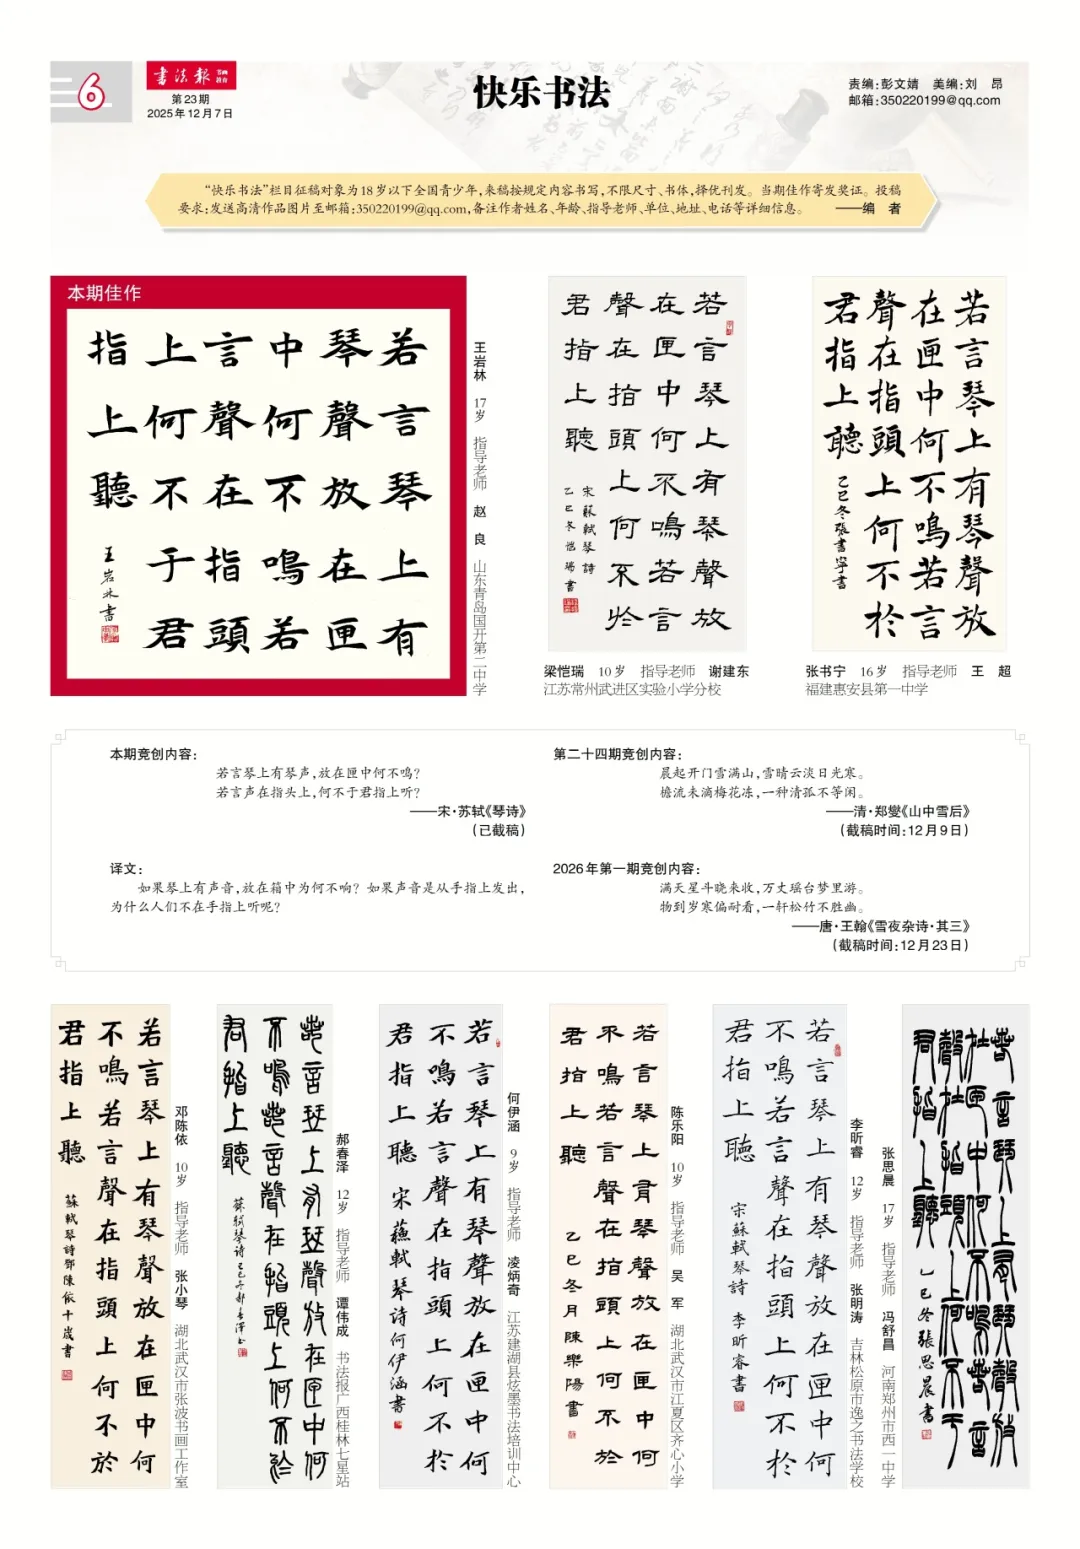 6
书法报 书画教育
第23期
2025年12月7日
快乐书法
责编:彭文婧 美编:刘 昂
邮箱:350220199@qq.com
“快乐书法”栏目征稿对象为18岁以下全国青少年,来稿按规定内容书写,不限尺寸、书体,择优刊发。当期佳作寄发奖证。投稿
要求:发送高清作品图片至邮箱:350220199@qq.com,备注作者姓名、年龄、指导老师、单位、地址、电话等详细信息。 ——编 者
本期佳作
若言琴上有
琴聲放在匣
中何不鳴若
言聲在指頭
上何不于君
指上聽
王岩林書
王岩林 17岁 指导老师 赵 良 山东青岛国开第二中学
若言琴上有琴聲放
在匣中何不鳴若言
聲在指頭上何不於
君指上聽
宋蘇軾琴詩
乙巳冬恺瑞書
梁恺瑞 10岁 指导老师 谢建东
江苏常州武进区实验小学分校
若言琴上有琴聲放
在匣中何不鳴若言
聲在指頭上何不於
君指上聽
乙巳冬張書寧書
张书宁 16岁 指导老师 王 超
福建惠安县第一中学
本期竞创内容:
若言琴上有琴声,放在匣中何不鸣?
若言声在指头上,何不于君指上听?
——宋·苏轼《琴诗》
(已截稿)
译文:
如果琴上有声音,放在箱中为何不响?如果声音是从手指上发出,
为什么人们不在手指上听呢?
第二十四期竞创内容:
晨起开门雪满山,雪晴云淡日光寒。
檐流未滴梅花冻,一种清孤不等闲。
——清·郑燮《山中雪后》
(截稿时间:12月9日)
2026年第一期竞创内容:
满天星斗晓来收,万丈瑶台梦里游。
物到岁寒偏耐看,一轩松竹不胜幽。
——唐·王翰《雪夜杂诗·其三》
(截稿时间:12月23日)
若言琴上有琴聲放在匣中何
不鳴若言聲在指頭上何不於
君指上聽
蘇軾琴詩鄧陳依十歲書
邓陈依 10岁 指导老师 张小琴 湖北武汉市张波书画工作室
若言琴上有琴聲放在匣中何
不鳴若言聲在指頭上何不於
君指上聽
蘇軾琴诗乙巳冬郝春泽书
郝春泽 12岁 指导老师 谭伟成 书法报广西桂林七星站
若言琴上有琴聲放在匣中何
不鳴若言聲在指頭上何不於
君指上聽
宋蘇軾琴诗何伊涵書
何伊涵 9岁 指导老师 凌炳奇 江苏建湖县炫墨书法培训中心
若言琴上有琴聲放在匣中何
不鳴若言聲在指頭上何不於
君指上聽
乙巳冬月陳樂陽書
陈乐阳 10岁 指导老师 吴 军 湖北武汉市江夏区齐心小学
若言琴上有琴聲放在匣中何
不鳴若言聲在指頭上何不於
君指上聽
宋蘇軾琴詩 李昕睿書
李昕睿 12岁 指导老师 张明涛 吉林松原市逸之书法学校
若言琴上有琴聲放
在匣中何不鳴若言
聲在指頭上何不于
君指上聽
乙巳冬張思晨書
张思晨 17岁 指导老师 冯舒昌 河南郑州市西一中学